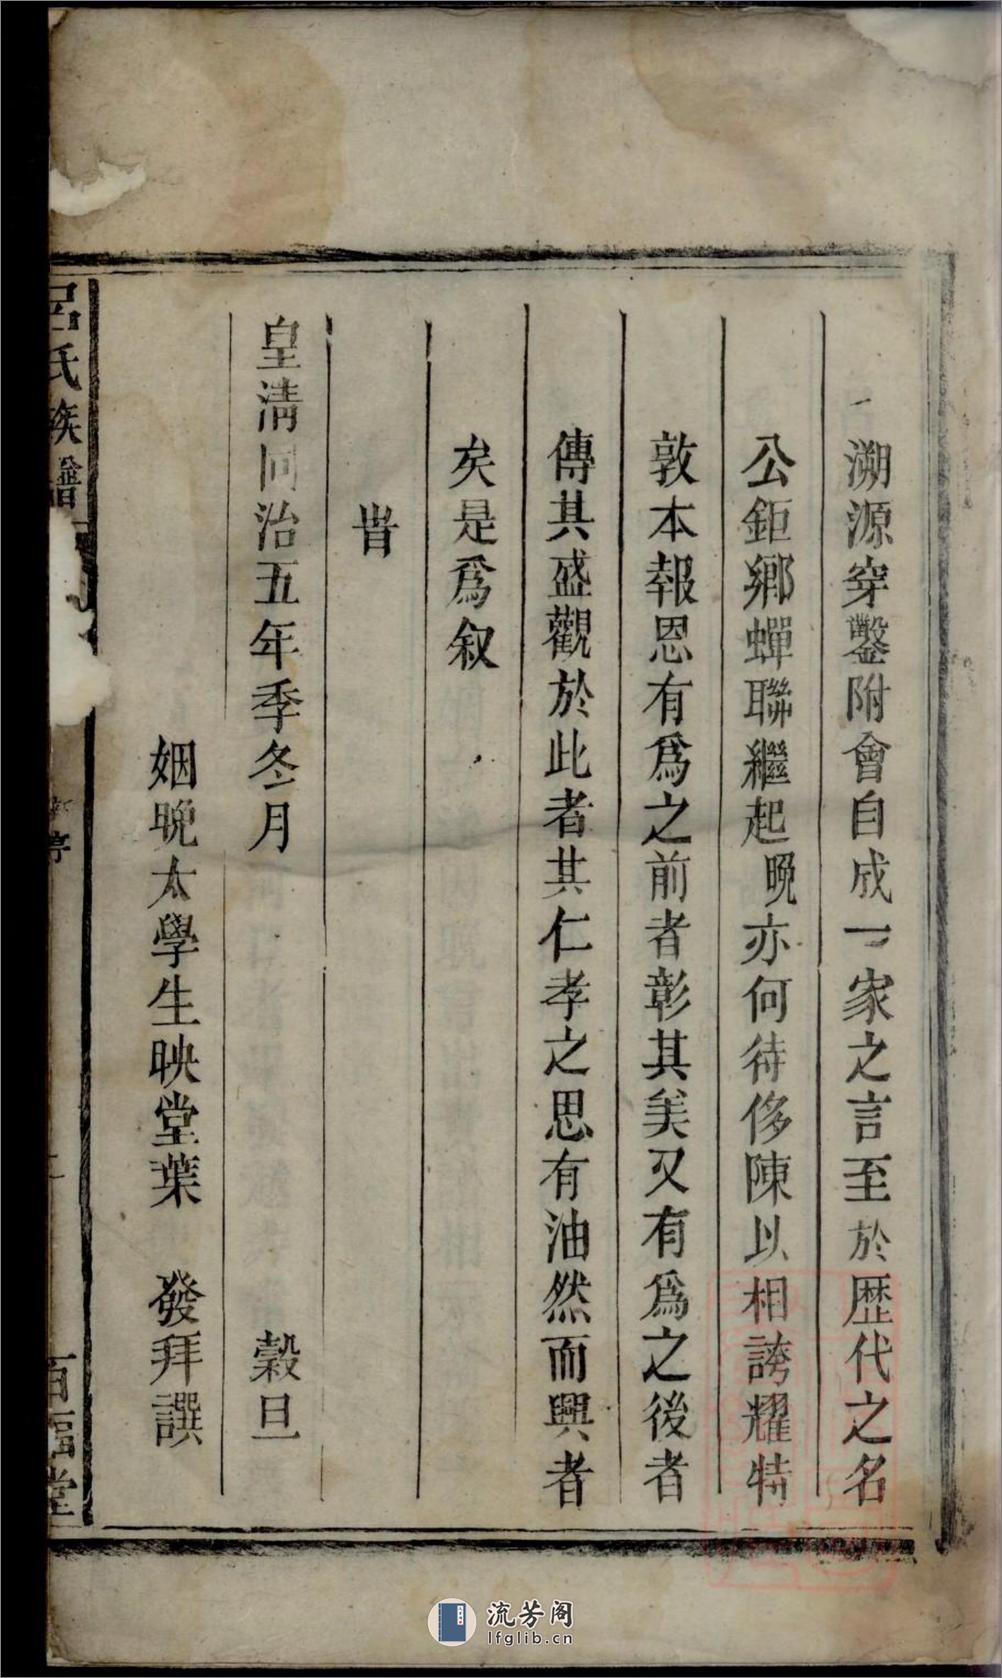 溯源穿鑿附會自成一家之言至於歴代之名
公鉅鄉蟬聯繼起晩亦何待侈陳以相誇耀特
敦本報恩有爲之前者彰其美又有爲之後者
傳其盛觀於此者其仁孝之思有油然而興者
矣是爲叙
旹
皇清同治五年季冬月 穀旦
姻晩太學生映堂葉 發拜譔
呂氏族譜
百福堂
流芳阁
lfglib.cn